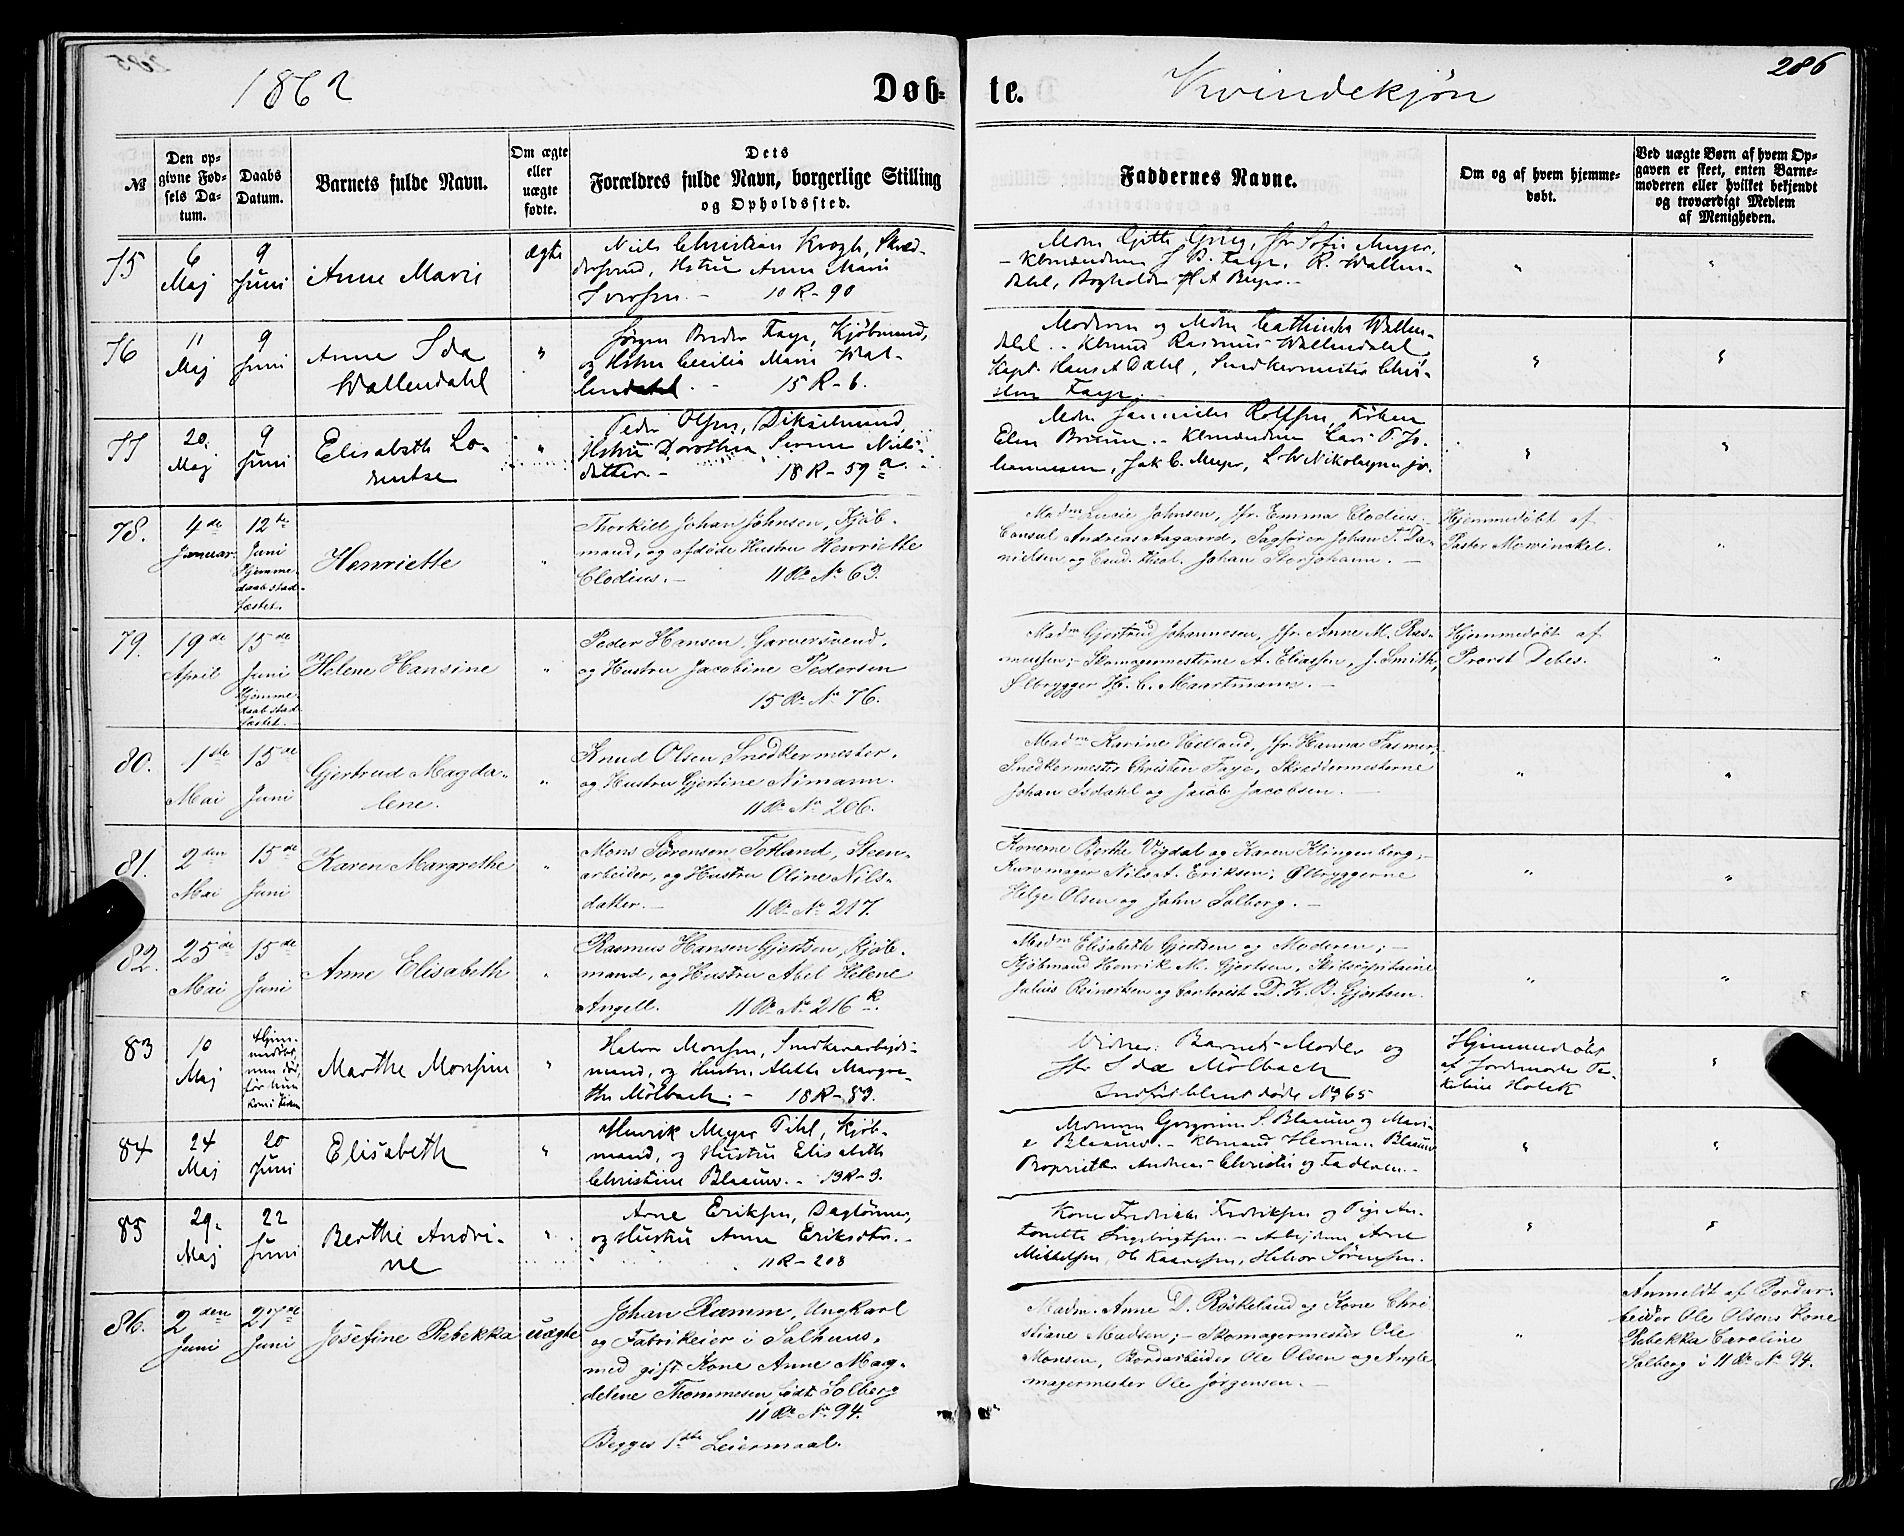 286
1862
Døb-
te.
Kvindekjøn
№
Den op-
givne Fød-
sels Da-
tum.
Daabs
Datum.
Barnets fulde Navn.
Om ægte
eller
uægte
fødte.
Dets
Forældres fulde Navn, borgerlige Stilling
og Opholdssted.
Faddernes Navne.
Om og af hvem hjemme-
døbt.
Ved uægte Børn af hvem Op-
gaven er skeet, enten Barne-
moderen eller hvilket bekjendt
og troværdigt Medlem
af Menigheden.
75
6
Maj
9
Juni
Anne Marie
ægte
Niels Christian Krogh, Skræd-
dersvend, Hstru Anne Marie
Iversen.- 10 R-90
Mdm Gitte Grieg, Jfr Sofie Meyer,
- Kbmændene J B. Faye, R. Wallen-
dahl, Bogholder H A Beyer.-
76
11
Maj
9
Juni
Anne Ida
Wallendahl
"
Jørgen Breder Faye, Kjøbmand,
og Hstru Cecilia Marie Wal-
lendahl.- 15 R-6.
Moderen og Mdm Cathinka Wallen-
dahl.- Kbmand Rasmus Wallendahl,
Kapt. Hans A Dahl, Snedkermester Chri-
sten Faye.
"
"
77
20.
Maj
9
Juni
Elisabeth Lo-
rentse
"
Peder Olsen, Dikselmand,
Hstru Dorothea Serine Niels-
datter.- 18 R-59 a.
Elen
- Kbmændene Lars T. Jo-
hannesen, Jak C. Meyer, L W Nikolaysen jr.
"
"
78.
4de
Januar
12te
Juni
Hjemme-
daab stad-
fæstet.
Henriette
"
Thorkild Johan Johnsen, Kjøb-
mand, og afdøde Hustru Henriette
Clodius.- 11 R. No 63.
Madm Lucie Johnsen, Jfr. Emma Clodius.
Consul Andreas Aagaard, Sagfører Johan F. Da-
nielsen og Cand. theol. Johan Storjohann.-
Hjemmedøbt af
Pastor Mowinckel.
"
79.
19de
April
15de
Juni
Hjemme-
daab stad-
fæstet.-
Helene Hansine
"
Peder Hansen, Garversvend,
og Hustru Jacobine Pedersen
15 R. No 76.
Madm Gjertrud Johannesen, Jfr. Anne M. Ras-
mussen;- Skomagermesterne A. Eliassen, J. Smith,
Ølbrygger H. C. Maartmann.-
Hjemmedøbt af
Provst Debes.
"
80.
1ste
Mai
15de
Juni
Gjertrud Magda-
lene.
"
Knud Olsen Snedkermester,
og Hustru Gjertine Nimann.
11 R. No 206.
Madm Karine Helland, Jfr. Hanna Fasmer,
Snedkermester Christen Faye, Skreddermesterne
Johan Isdahl og Jacob Jacobsen.-
"
"
81.
2den
Mai
15de
Juni
Karen Margrethe
"
Mons Sørensen Totland, Steen-
arbeider, og Hustru Oline Nils-
datter.- 11 R. No 217.
Konerne Berthe Vigdal og Karen Klingenberg,-
Kurvmager Nils A. Eriksen, Ølbryggerne
Helge Olsen og John Solberg.-
"
"
82.
25de
Mai
15de
Juni
Anne Elisabeth
"
Rasmus Hansen Gjertsen, Kjøb-
mand, og Hustru Abel Helene
Angell. 11 R. No 216 k.
Madm Elisabeth Gjertsen og Moderen;-
Kjøbmand Henrik M. Gjertsen, Skibscapitaine
Julius Reinertsen og Contorist D. K. B. Gjertsen.
"
"
83
10
Maj
Hjem-
medøbt,
men død,
før hun
kom i Kirken
Marthe Monsine
"
Halvor Monsen, Snedkerarbejds-
mand, og Hustru Alette Margre-
the Mölbach.- 18 R-83.
Vidner: Barnets Moder og
Jfr Ida Mölbach
Indført blant døde No 65
Hjemmedøbt
af Jordmoder Ja-
kobine Holck
"
84
24
Maj
20
Juni
Elisabeth
"
Henrik Meyer Pihl, Kjøb-
mand, og Hustru Elisabeth
Christine Blaauw.- 13 R-3.
Blaauw og Mari-
e Blaauw.- Kbmand Herman Blaauw
Andreas Christie og Faderen.-
"
"
85
29.
Maj
22
Juni
Berthe Andri-
ne
"
Arne Eriksen, Daglønner,
og Hustru Anne Eriksdtr.-
11 R-208
Kone Fredrikke Fredriksen og Pige An-
tonette Ingebrigtsen.- Arbejdern. Arne
Mikkelsen, Ole Knudsen, Halvor Sørensen.
"
"
86.
2den
Juni
27de
Juni
Josefine Rebekka
uægte
Johan Ramm, Ungkarl
og Fabrikeier i Salhuus,
med gift Kone Anne Mag-
delene Thommesen født Solberg
11 R. No 94.
Begges 1ste Leiermaal.
Madm. Anne D. Röskeland og Kone Chri-
stiane Madsen;- Skomagermester Ole
Monsen, Bordarbeider Ole Olsen og Angle-
magermester Ole Jørgensen.-
"
Anmeldt af Bordar-
beider Ole Olsens Kone
Rebekka Caroline
Solberg i 11 R. No 94.